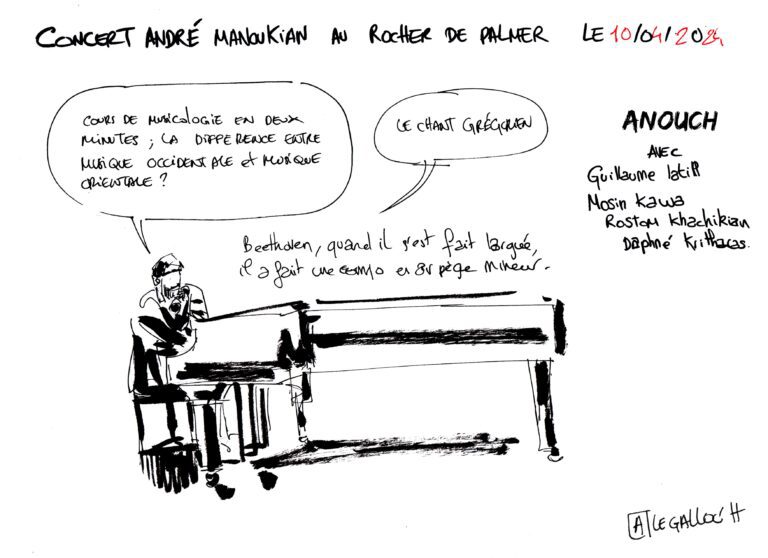 CONCERT ANDRÉ MANOUKIAN AU ROCHER DE PALMER LE 10/04/2024
COURS DE MUSICOLOGIE EN DEUX
MINUTES ; LA DIFFERENCE ENTRE
MUSIQUE OCCIDENTALE ET MUSIQUE
ORIENTALE ?
LE CHANT GRÉGORIEN
ANOUCH
AVEC
Guillaume latil
Mosin Kawa
Rostom Khachikian
Daphné Kritharas.
Beethoven, quand il s'est fait larguée,
il a fait une compo en arpège mineur.
A LEGALLOC'H